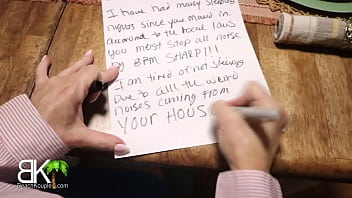 I have had many sleepless
nights since you moved in
according to the local laws
you must stop all noise
by 8PM SHARP!!!
I am tired of not sleeping
Due to alll the weird
noises coming from
YOUR HOUS
BK
BeachKouples.com